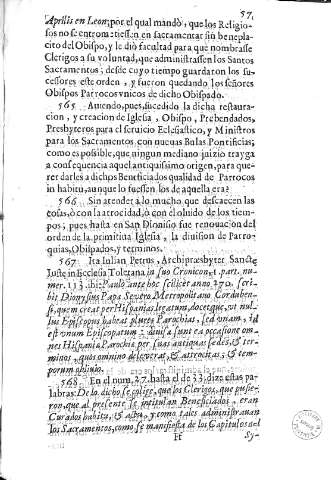 57.
Aprilis in Leon; por el qual mandò, que los Religio-
sos no se entrometiessen en sacramentar sin benepla-
cito del Obispo, y le diò facultad para que nombrasse
Clerigos a su voluntad, que administrassen los Santos
Sacramentos; desde cuyo tiempo guardaron los su-
cessores este orden, y fueron quedando los señores
Obispos Parrocos vnicos de dicho Obispado.
565 Auiendo, pues, sucedido la dicha restaura-
cion, y creacion de Iglesia, Obispo, Prebendados,
Presbyteros para el seruicio Eclesiastico, y Ministros
para los Sacramentos con nueuas Bulas Pontificias;
como es possible, que ningun mediano juizio trayga
a consequencia aquel antiquissimo origen, para que-
rer darles a dichos Beneficiados qualidad de Parrocos
in habitu, aunque lo fuessen los de aquella era?
566 Sin atender a lo mucho que descaecen las
cosas, ò con la atrocidad, ò con el oluido de los tiem-
pos; pues hasta en San Dionisio fue renouacion del
orden de la primitiua Iglesia, la diuision de Parro-
quias, Obispados, y terminos.
567 Ita Iulian Petrus, Archipresbyter Sanctæ
Iustæ in Ecclesia Toletana in suo Cronicon, 1. part. nu-
mer. 113. ibi: Paulò ante hoc scilicet anno 270. scri-
bit Dionysius Papa Severo Metropolitano Corduben-
si, quem creat per Hispanias legatum, docetque, ut nul-
lus Episcopus habeat plures Parochias, sed unam,
unum Episcopatum
nes Hispania Parochiæ per suas antiquas sedes, & ter-
minos, quos omnino deleverat, & atrocitas, & tem-
porum oblivio.
568 En el num. 27. hasta el de 33. dize estas pa-
labras: De lo dicho se colige, que los Clerigos, que pusie-
ron, que al presente se intitulan Beneficiados, eran
Curados habitu, & actu, y como tales administrauan
los Sacramentos, como se manifiesta de los Capitulos del
Ff Sy-